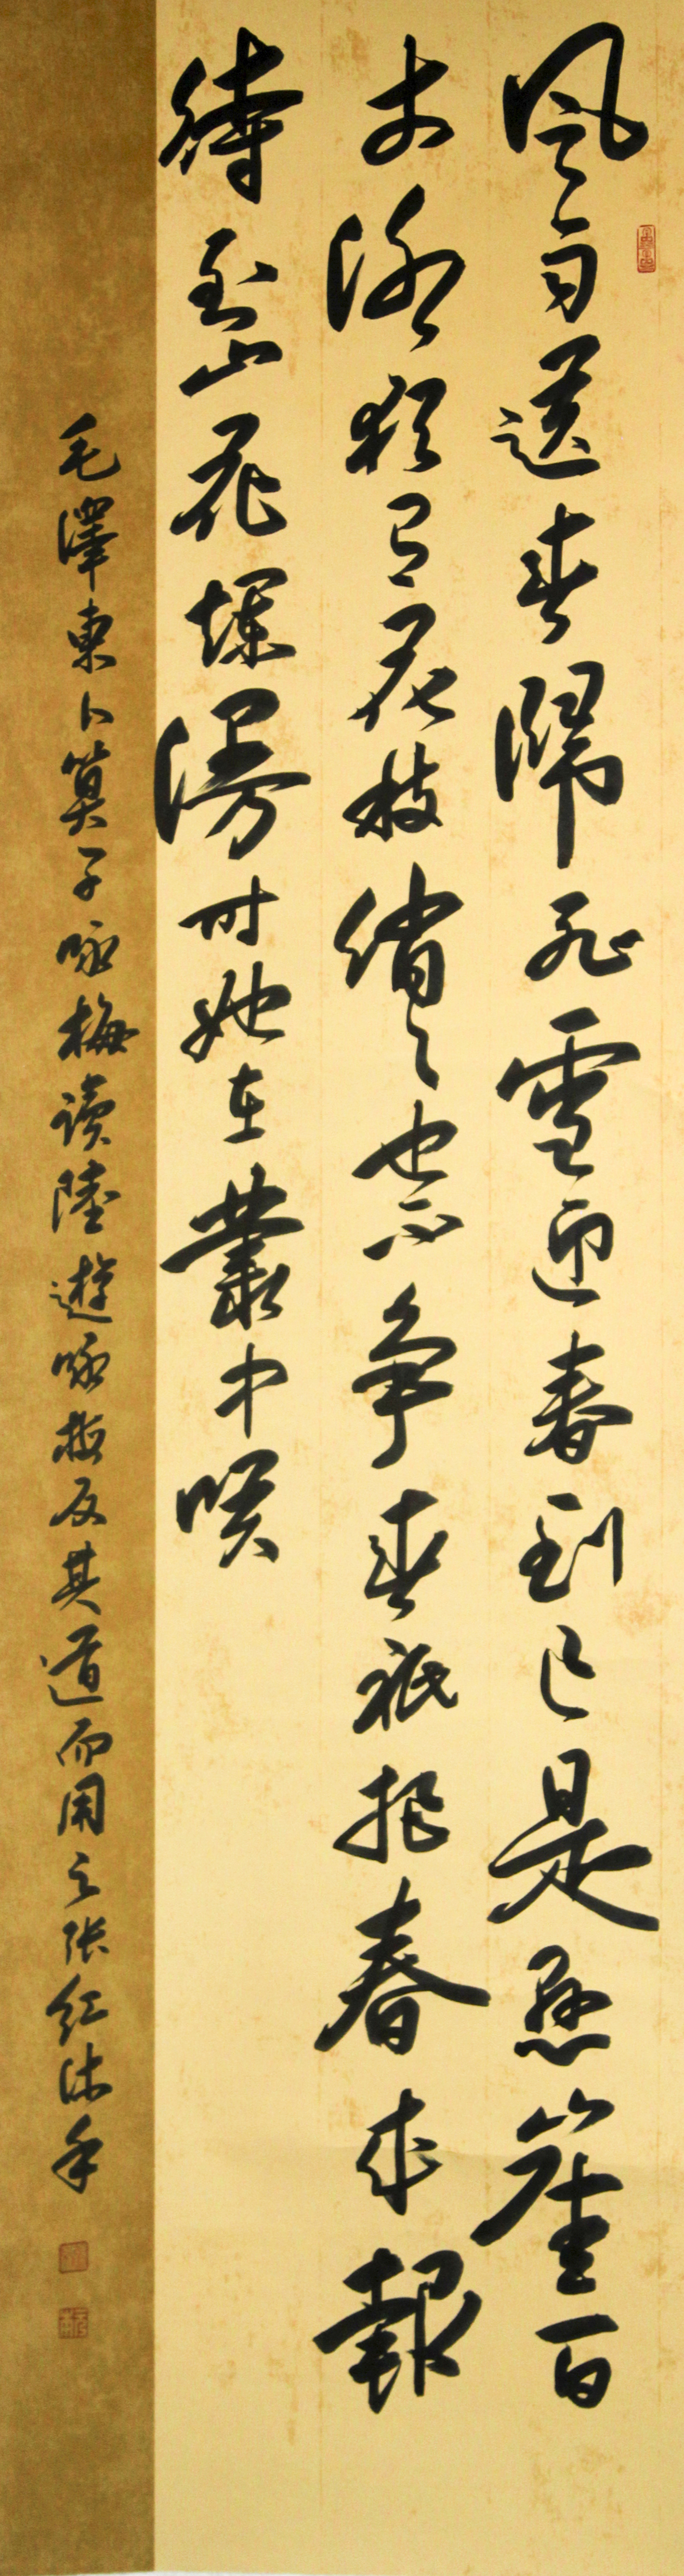 風雨送春歸飛雪迎春到已是懸崖百
丈冰猶有花枝俏々也不争春祇把春来報
待到山花爛漫时她在叢中咲
毛澤東卜算子咏梅读陸遊咏梅反其道而用之张红沐手